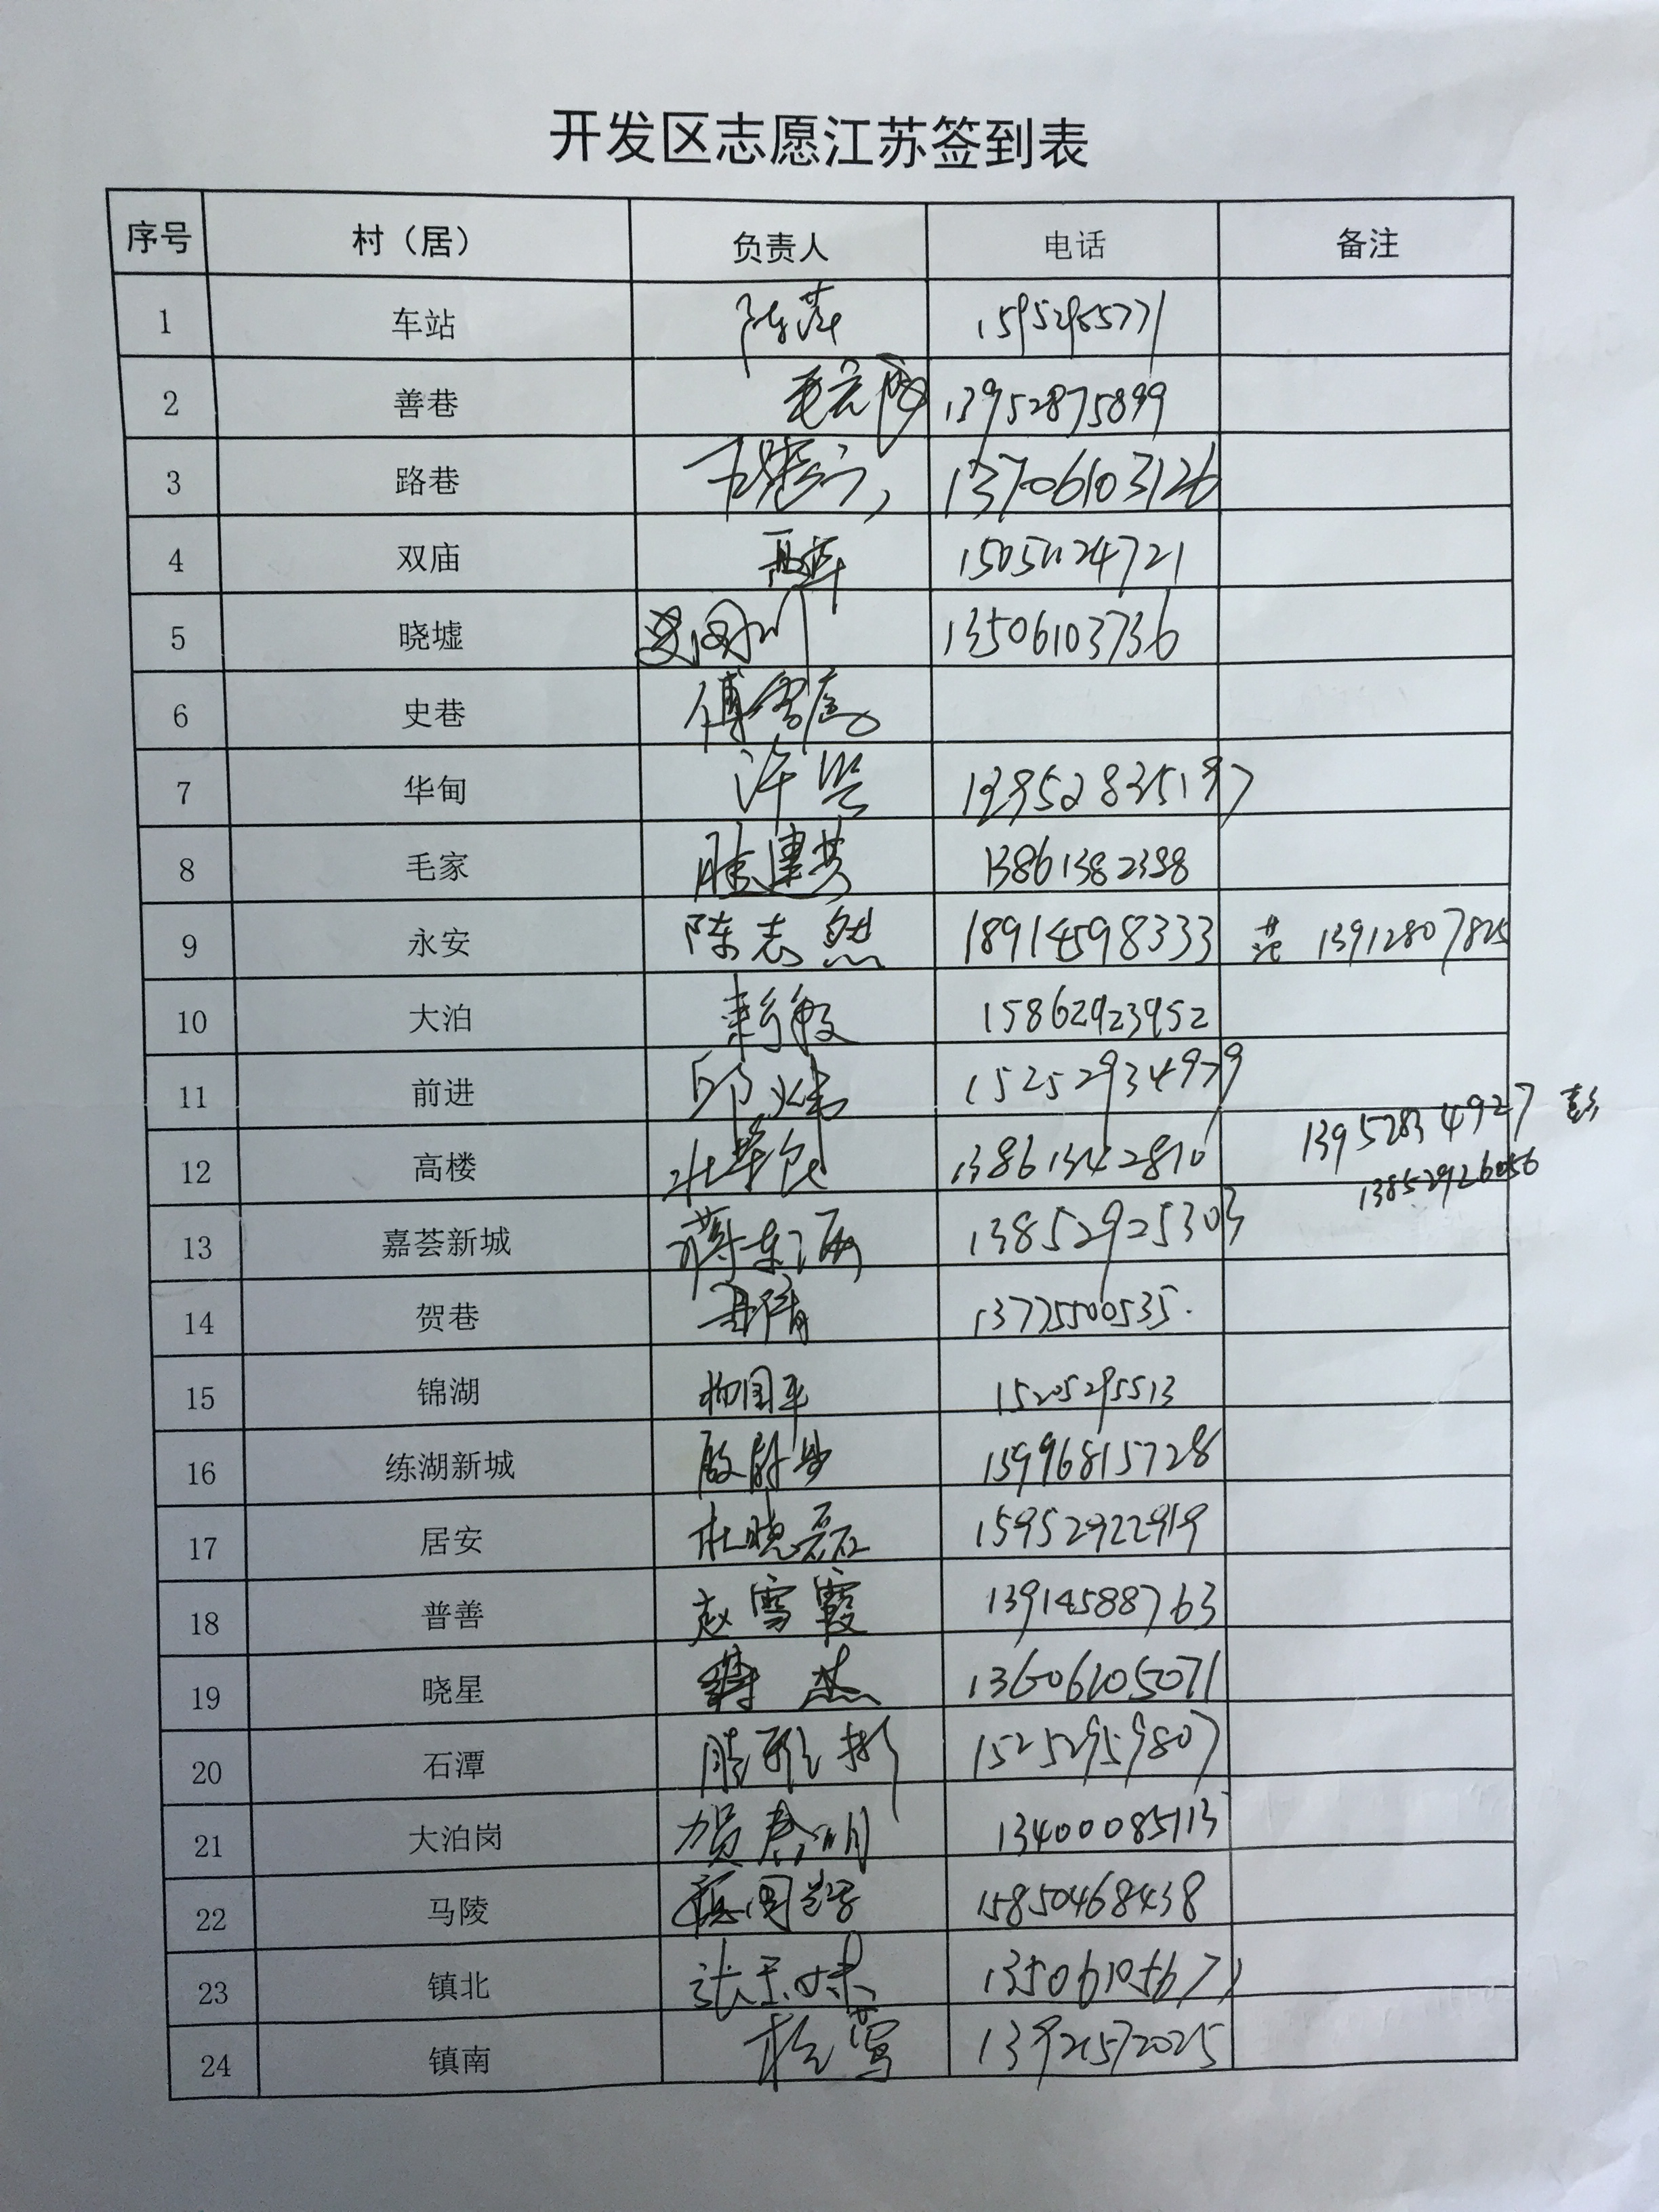 开发区志愿江苏签到表
序号 村（居） 负责人 电话 备注
1 车站 陈萍 15952965771
2 善巷 13952875899
3 路巷 13706103126
4 双庙 15051124721
5 晓墟 13506103736
6 史巷
7 华甸 许 13952835197
8 毛家 13861382398
9 永安 陈志然 18914598333 范 13912807825
10 大泊 15862923952
11 前进 15252934979
13952834927 彭
12 高楼 13861342810
13852926056
13 嘉荟新城 蒋东海 13852925303
14 贺巷 13775500535.
15 锦湖 柳国平 15205295513
16 练湖新城 15996815728
17 居安 杜晓磊 15952922919
18 普善 赵雪霞 13914588763
19 晓星 杰 13606105071
20 石潭 15252959807
21 大泊岗 贺春明 13400085113
22 马陵 15850468438
23 镇北 张玉妹 13506105671
24 镇南 13921572025